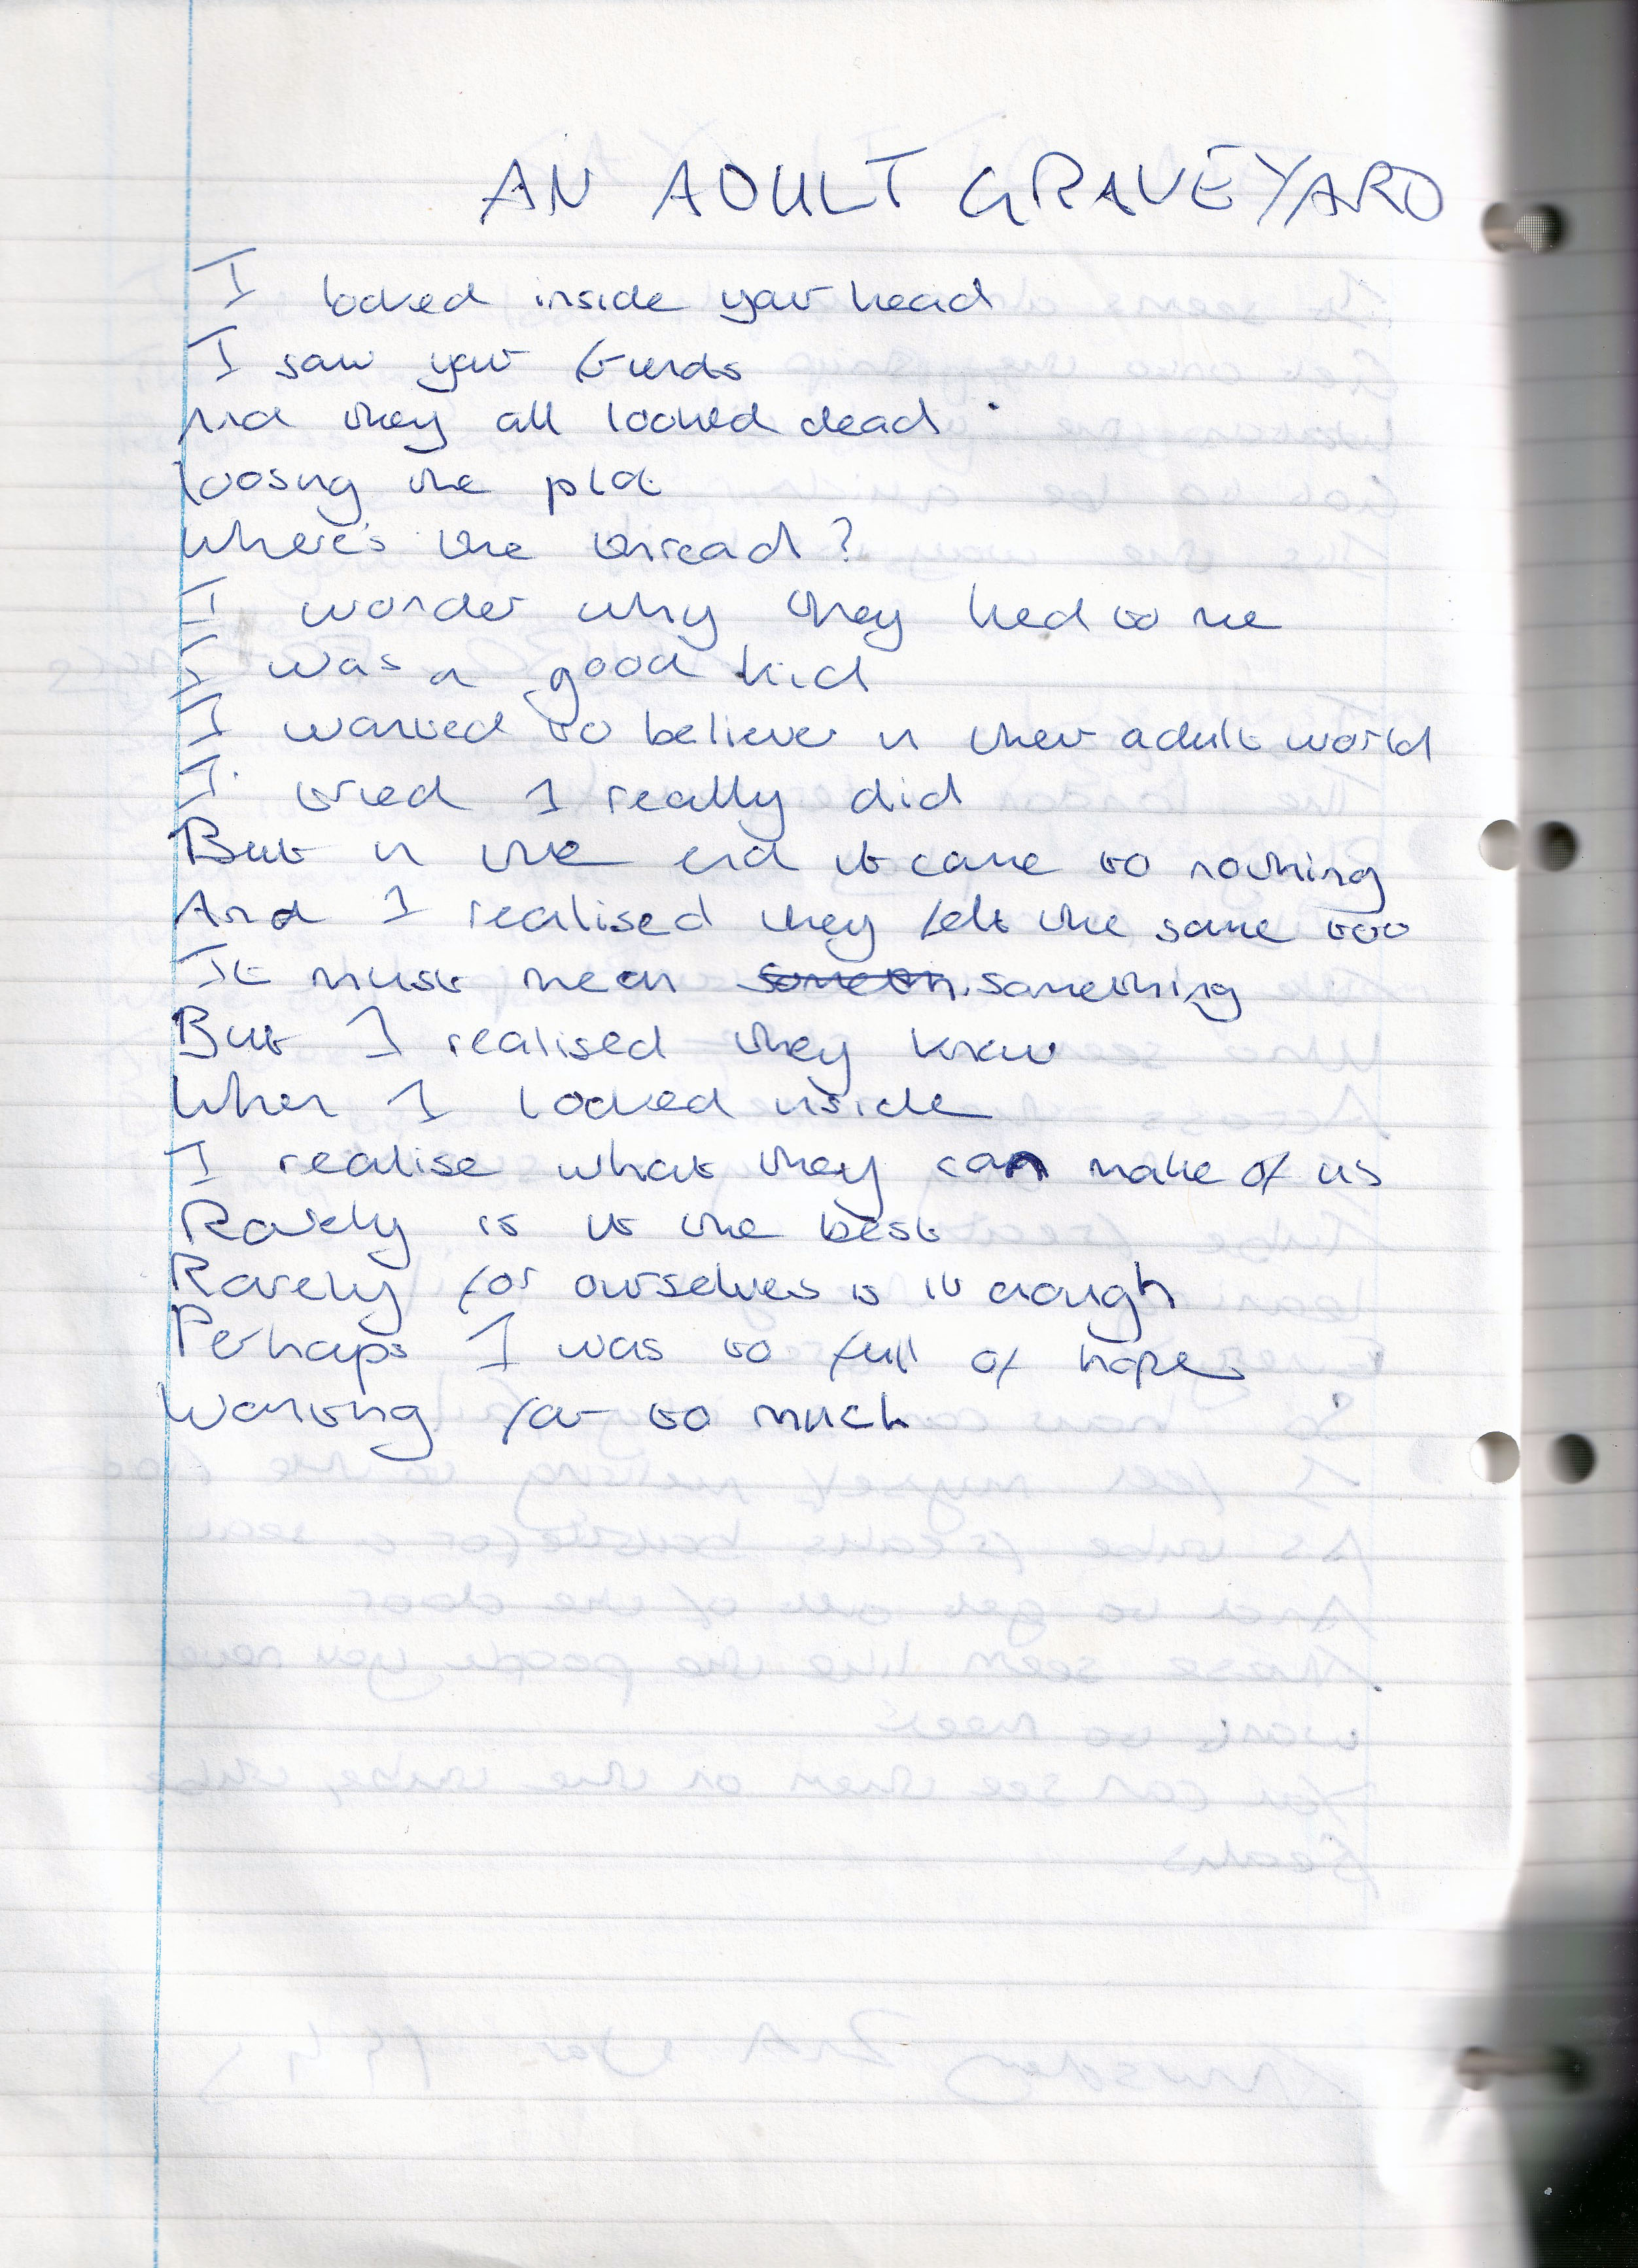 AN ADULT GRAVEYARD
I looked inside your head
I saw your friends
And they all looked dead
loosing the plot
Where's the thread?
I wonder why they lied to me
I was a good kid
I wanted to believe in their adult world
I tried I really did
But in the end it came to nothing
And I realised they felt the same too
It must mean someth. something
But I realised they knew
When I looked inside
I realise what they can make of us
Rarely is it the best
Rarely for ourselves is it enough
Perhaps I was to full of hope
Wanting far to much